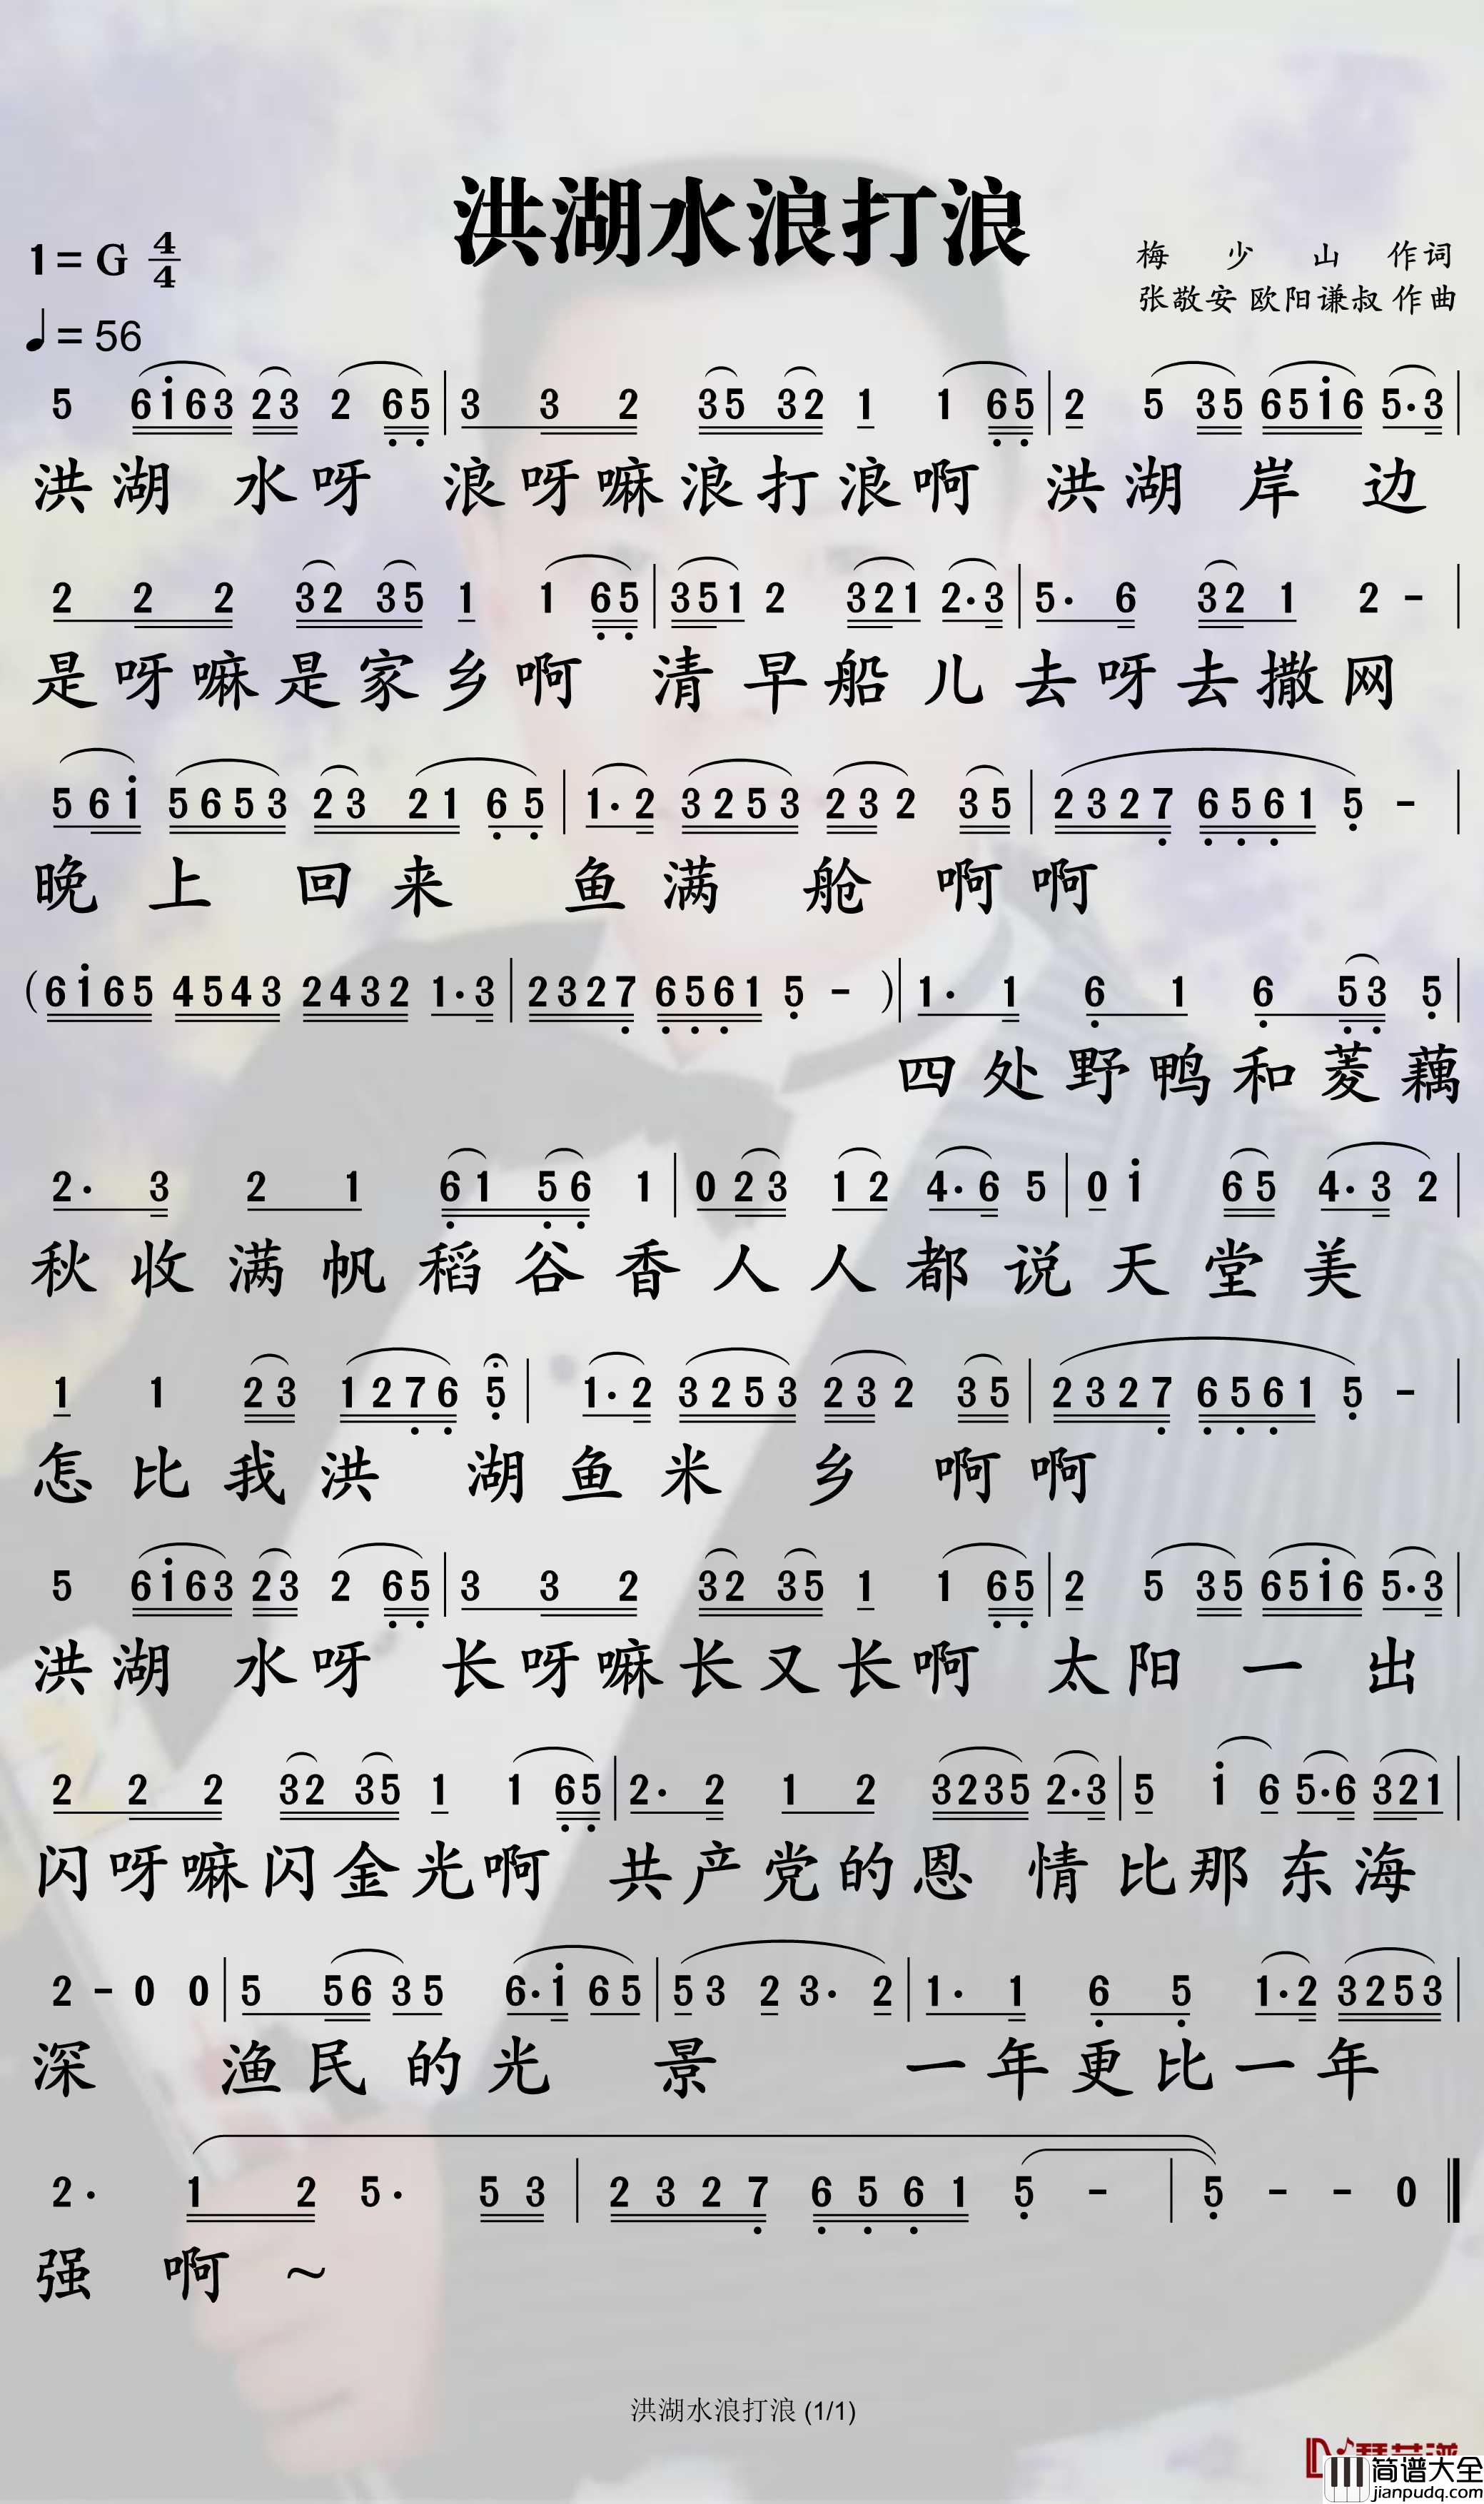 洪湖水浪打浪
1=G 4/4
梅少山 作词
♩=56
张敬安 欧阳谦叔 作曲
5 6i63 23 2 65 | 3 3 2 35 32 1 1 65 | 2 5 35 65i6 5·3 |
洪湖 水呀 浪呀嘛浪打浪啊 洪湖 岸 边
2 2 2 32 35 1 1 65 | 351 2 321 2·3 | 5· 6 32 1 2 - |
是呀嘛是家乡啊 清早船儿去呀去撒网
56i 5653 23 21 65 | 1·2 3253 232 35 | 2327 6561 5 - |
晚上 回来 鱼满 舱 啊啊
(6i65 4543 2432 1·3 | 2327 6561 5 - )| 1· 1 6 1 6 53 5 |
四处野鸭和菱藕
2· 3 2 1 61 56 1 | 0 23 12 4·6 5 | 0 i 65 4·3 2 |
秋收满帆稻谷香人人都说天堂美
1 1 23 1276 5 | 1·2 3253 232 35 | 2327 6561 5 - |
怎比我洪 湖鱼米 乡 啊啊
5 6i63 23 2 65 | 3 3 2 32 35 1 1 65 | 2 5 35 65i6 5·3 |
洪湖 水呀 长呀嘛长又长啊 太阳 一 出
2 2 2 32 35 1 1 65 | 2· 2 1 2 3235 2·3 | 5 i 6 5·6 321 |
闪呀嘛闪金光啊 共产党的恩 情比那东海
2 - 0 0 | 5 56 35 6·i 65 | 53 2 3· 2 | 1· 1 6 5 1·2 3253 |
深 渔民的光 景 一年更比一年
2· 1 2 5· 53 | 2327 6561 5 - | 5 - - 0 ‖
强 啊 ~
洪湖水浪打浪 (1/1)
简谱大全
jianpudq.com